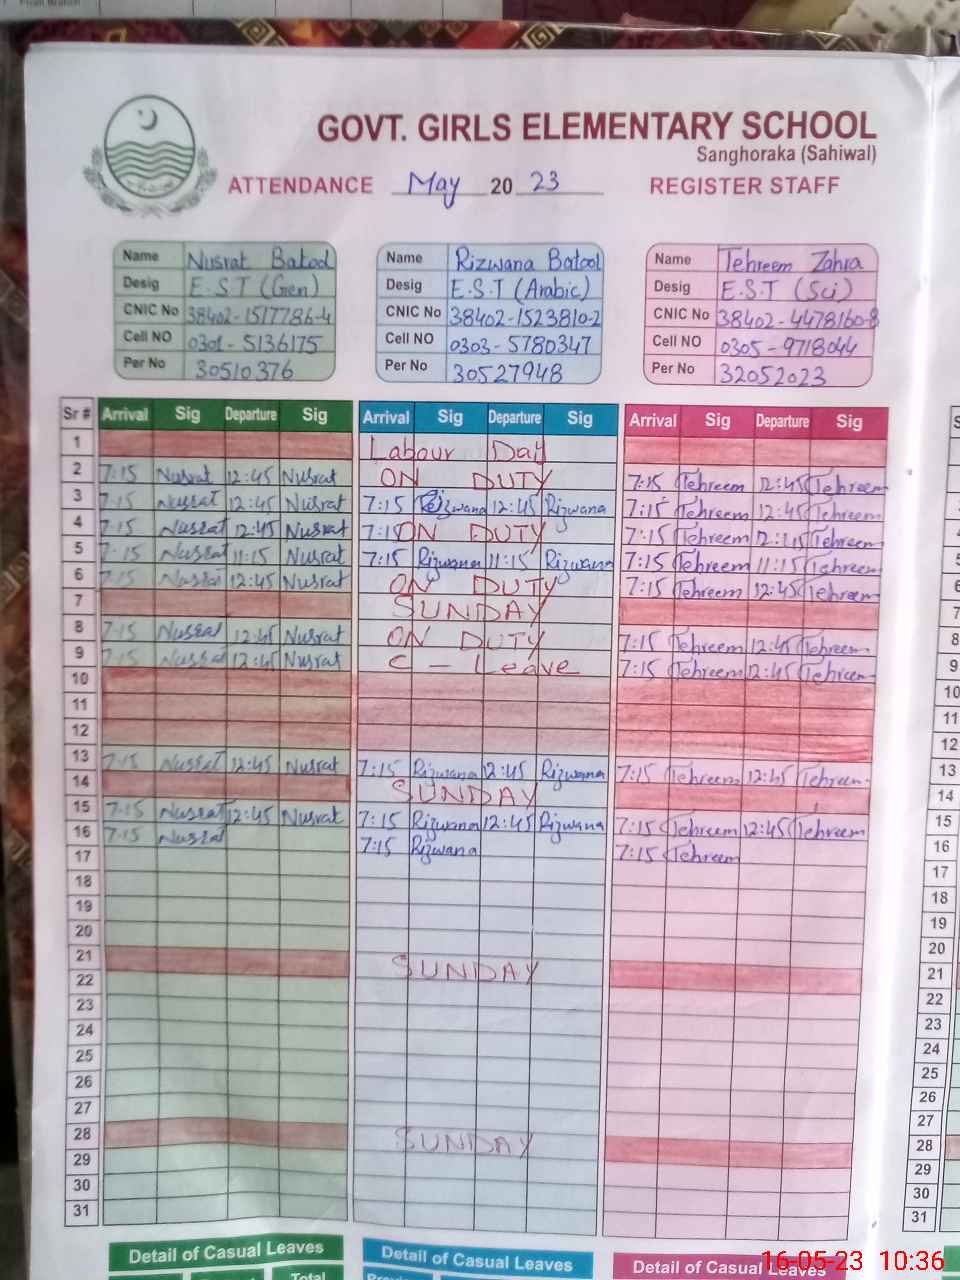 GOVT. GIRLS ELEMENTARY SCHOOL
Sanghoraka (Sahiwal)
ATTENDANCE May 20 23 REGISTER STAFF
Name Nusrat Batool Name Rizwana Batool Name Tehreem Zahra
Desig E.S.T (Gen) Desig E.S.T (Arabic) Desig E.S.T (Sci)
CNIC No 38402-1517786-4 CNIC No 38402-1523810-2 CNIC No 38402-4478160-8
Cell NO 0301-5136175 Cell NO 0303-5780347 Cell NO 0305-9718044
Per No 30510376 Per No 30527948 Per No 32052023
Sr # Arrival Sig Departure Sig Arrival Sig Departure Sig Arrival Sig Departure Sig
1 Labour Day
2 7:15 Nusrat 12:45 Nusrat ON DUTY 7:15 Tehreem 12:45 Tehreem
3 7:15 Nusrat 12:45 Nusrat 7:15 Rizwana 12:45 Rizwana 7:15 Tehreem 12:45 Tehreem 3
4 7:15 Nusrat 12:45 Nusrat 7:1 ON DUTY 7:15 Tehreem 12:45 Tehreem
5 7:15 Nusrat 11:15 Nusrat 7:15 Rizwana 11:15 Rizwana 7:15 Tehreem 11:15 Tehreem 5
6 7:15 Nusrat 12:45 Nusrat ON DUTY 7:15 Tehreem 12:45 Tehreem 6
7 SUNDAY 7
8 7:15 Nusrat 12:45 Nusrat ON DUTY 7:15 Tehreem 12:45 Tehreem 8
9 7:15 Nusrat 12:45 Nusrat C - Leave 7:15 Tehreem 12:45 Tehreem 9
10 10
11 11
12 12
13 7:15 Nusrat 12:45 Nusrat 7:15 Rizwana 12:45 Rizwana 7:15 Tehreem 12:45 Tehreem 13
14 SUNDAY 14
15 7:15 Nusrat 12:45 Nusrat 7:15 Rizwana 12:45 Rizwana 7:15 Tehreem 12:45 Tehreem 15
16 7:15 Nusrat 7:15 Rizwana 7:15 Tehreem 16
17 17
18 18
19 19
20 20
21 SUNDAY 21
22 22
23 23
24 24
25 25
26 26
27 27
28 SUNDAY 28
29 29
30 30
31 31
Detail of Casual Leaves Detail of Casual Leaves Detail of Casual Leaves
Total
16-05-23 10:36